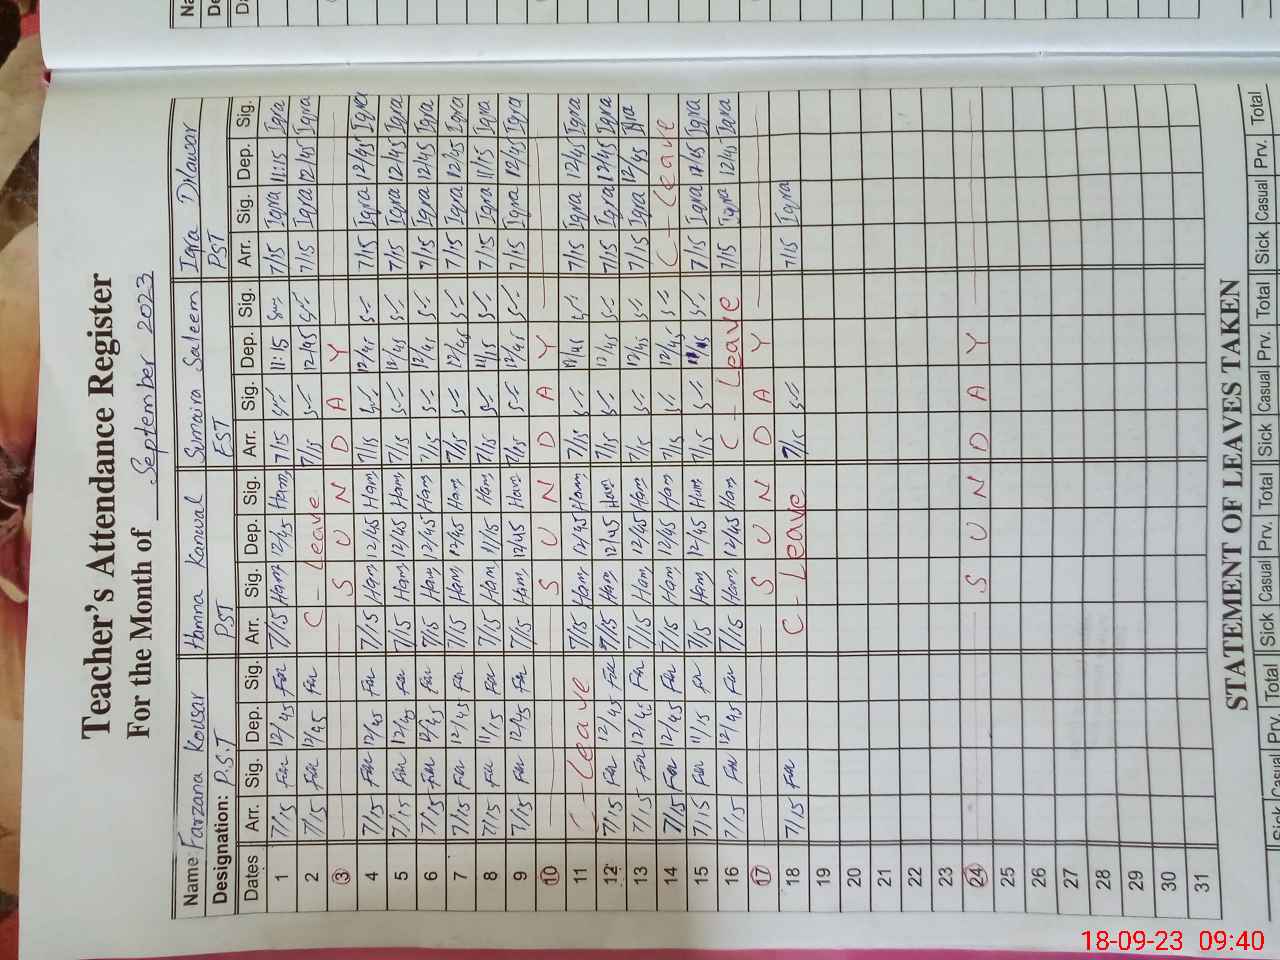 Teacher's Attendance Register
For the Month of September 2023
Name: Farzana Kousar Hamna Kanwal Sumaira Saleem Iqra Dilawar
Designation: P.S.T PST EST PST
Dates Arr. Sig. Dep. Sig. Arr. Sig. Dep. Sig. Arr. Sig. Dep. Sig. Arr. Sig. Dep. Sig.
1 7/15 Far 12/45 Far 7/15 Ham 12/45 Ham 7/15 11:15 7/15 Iqra 11:15 Iqra
2 7/15 Far 12/45 Far C - Leave 7/15 12/45 7/15 Iqra 12/45 Iqra
3 S U N D A Y
4 7/15 Far 12/45 Far 7/15 Ham 12/45 Ham 7/15 12/45 7/15 Iqra 12/45 Iqra
5 7/15 Far 12/45 Far 7/15 Ham 12/45 Ham 7/15 12/45 7/15 Iqra 12/45 Iqra
6 7/15 Far 12/45 Far 7/15 Ham 12/45 Ham 7/15 12/45 7/15 Iqra 12/45 Iqra
7 7/15 Far 12/45 Far 7/15 Ham 12/45 Ham 7/15 12/45 7/15 Iqra 12/45 Iqra
8 7/15 Far 11/15 Far 7/15 Ham 11/15 Ham 7/15 11/15 7/15 Iqra 11/15 Iqra
9 7/15 Far 12/45 Far 7/15 Ham 12/45 Ham 7/15 12/45 7/15 Iqra 12/45 Iqra
10 S U N D A Y
11 C Leave 7/15 Ham 12/45 Ham 7/15 12/45 7/15 Iqra 12/45 Iqra
12 7/15 Far 12/45 Far 7/15 Ham 12/45 Ham 7/15 12/45 7/15 Iqra 12/45 Iqra
13 7/15 Far 12/45 Far 7/15 Ham 12/45 Ham 7/15 12/45 7/15 Iqra 12/45 Iqra
14 7/15 Far 12/45 Far 7/15 Ham 12/45 Ham 7/15 12/45 C - Leave
15 7/15 Far 11/15 Far 7/15 Ham 12/45 Ham 7/15 7/15 Iqra Iqra
16 7/15 Far 12/45 Far 7/15 Ham 12/45 Ham C - Leave 7/15 Iqra 12/45 Iqra
17 S U N D A Y
18 7/15 Far C - Leave 7/15 7/15 Iqra
19
20
21
22
23
24 S U N D A Y
25
26
27
28
29
30
31
STATEMENT OF LEAVES TAKEN
Sick Casual Prv. Total Sick Casual Prv. Total Sick Casual Prv. Total Sick Casual Prv. Total
18-09-23 09:40